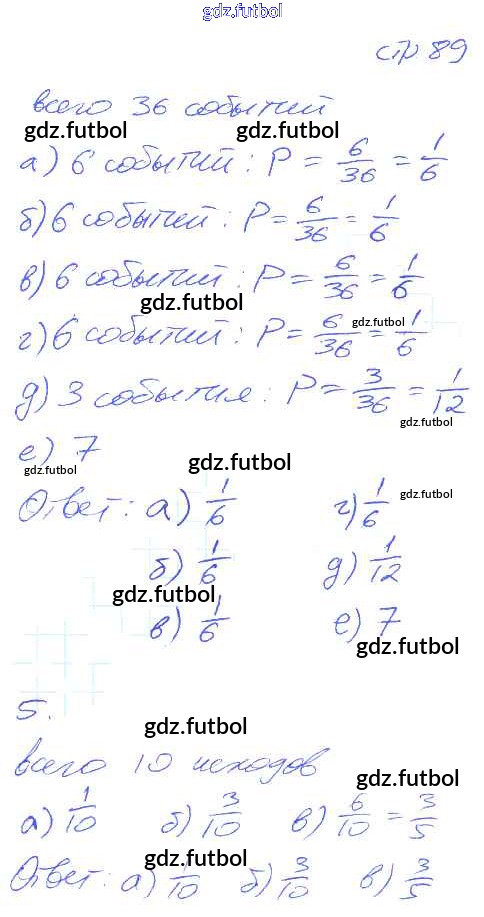 gdz.futbol
стр 89
всего 36 событий
gdz.futbol gdz.futbol
а) 6 событий : P = 6/36 = 1/6
б) 6 событий : P = 6/36 = 1/6
в) 6 событий : P = 6/36 = 1/6
gdz.futbol
г) 6 событий : P = 6/36 = 1/6
gdz.futbol
д) 3 события : P = 3/36 = 1/12
gdz.futbol
е) 7
gdz.futbol gdz.futbol
Ответ : а) 1/6 г) 1/6
gdz.futbol
б) 1/6 д) 1/12
gdz.futbol
в) 1/6 е) 7
gdz.futbol
5.
gdz.futbol
всего 10 исходов
gdz.futbol
а) 1/10 б) 3/10 в) 6/10 = 3/5
gdz.futbol gdz.futbol
Ответ : а) 1/10 б) 3/10 в) 3/5